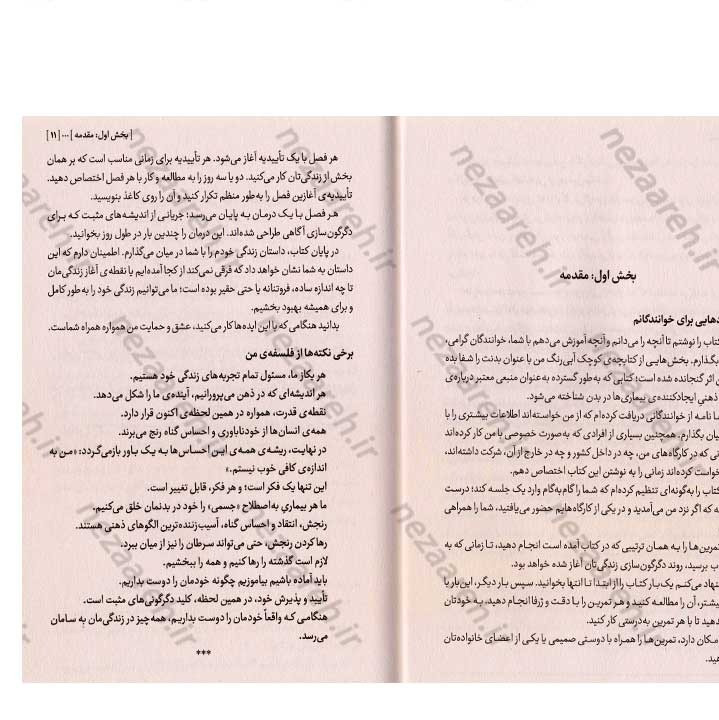 بخش اول: مقدمه
دهایی برای خوانندگانم
کتاب را نوشتم تا آنچه را می‌دانم و آنچه آموزش می‌دهم با شما، خوانندگان گرامی،
بگذارم. بخش‌هایی از کتابچه‌ی کوچک آبی‌رنگ من با عنوان بدنت را شفا بده
اثر گنجانده شده است؛ کتابی که به‌طور گسترده به‌عنوان منبعی معتبر درباره‌ی
ذهنیِ ایجادکننده‌ی بیماری‌ها در بدن شناخته می‌شود.
نامه از خوانندگانی دریافت کرده‌ام که از من خواسته‌اند اطلاعات بیشتری را با
بگذارم. همچنین بسیاری از افرادی که به‌صورت خصوصی با من کار کرده‌اند
که در کارگاه‌های من، چه در داخل کشور و چه در خارج از آن، شرکت داشته‌اند،
کرده‌اند زمانی را به نوشتن این کتاب اختصاص دهم.
کتاب را به‌گونه‌ای تنظیم کرده‌ام که شما را گام‌به‌گام وارد یک جلسه کند؛ درست
که اگر نزد من می‌آمدید و در یکی از کارگاه‌هایم حضور می‌یافتید، شما را همراهی
تمرین‌ها را به همان ترتیبی که در کتاب آمده است انجام دهید، تا زمانی که به
برسید، روند دگرگون‌سازی زندگی‌تان آغاز شده خواهد بود.
می‌کنم یک‌بار کتاب را از ابتدا تا انتها بخوانید. سپس بار دیگر، این‌بار با
آن را مطالعه کنید و هر تمرین را با دقت و ژرفا انجام دهید. به خودتان
دهید تا با هر تمرین به‌درستی کار کنید.
دارد، تمرین‌ها را همراه با دوستی صمیمی یا یکی از اعضای خانواده‌تان
[ بخش اول: مقدمه ] ... [ ۱۱ ]
هر فصل با یک تأییدیه آغاز می‌شود. هر تأییدیه برای زمانی مناسب است که بر همان
بخش از زندگی‌تان کار می‌کنید. دو یا سه روز را به مطالعه و کار با هر فصل اختصاص دهید.
تأییدیه‌ی آغازین فصل را به‌طور منظم تکرار کنید و آن را روی کاغذ بنویسید.
هر فصل با یک درمان به پایان می‌رسد؛ جریانی از اندیشه‌های مثبت که برای
دگرگون‌سازی آگاهی طراحی شده‌اند. این درمان را چندین بار در طول روز بخوانید.
در پایان کتاب، داستان زندگی خودم را با شما در میان می‌گذارم. اطمینان دارم که این
داستان به شما نشان خواهد داد که فرقی نمی‌کند از کجا آمده‌ایم یا نقطه‌ی آغاز زندگی‌مان
تا چه اندازه ساده، فروتنانه یا حتی حقیر بوده است؛ ما می‌توانیم زندگی خود را به‌طور کامل
و برای همیشه بهبود بخشیم.
بدانید هنگامی که با این ایده‌ها کار می‌کنید، عشق و حمایت من همواره همراه شماست.
برخی نکته‌ها از فلسفه‌ی من
هر یک از ما، مسئول تمام تجربه‌های زندگی خود هستیم.
هر اندیشه‌ای که در ذهن می‌پرورانیم، آینده‌ی ما را شکل می‌دهد.
نقطه‌ی قدرت، همواره در همین لحظه‌ی اکنون قرار دارد.
همه‌ی انسان‌ها از خودناباوری و احساس گناه رنج می‌برند.
در نهایت، ریشه‌ی همه‌ی این احساس‌ها به یک باور بازمی‌گردد: «من به
اندازه‌ی کافی خوب نیستم.»
این تنها یک فکر است؛ و هر فکر، قابل تغییر است.
ما هر بیماریِ به‌اصطلاح «جسمی» را خود در بدنمان خلق می‌کنیم.
رنجش، انتقاد و احساس گناه، آسیب‌زننده‌ترین الگوهای ذهنی هستند.
رها کردن رنجش، حتی می‌تواند سرطان را نیز از میان ببرد.
لازم است گذشته را رها کنیم و همه را ببخشیم.
باید آماده باشیم بیاموزیم چگونه خودمان را دوست بداریم.
تأیید و پذیرش خود، در همین لحظه، کلید دگرگونی‌های مثبت است.
هنگامی که واقعاً خودمان را دوست بداریم، همه‌چیز در زندگی‌مان به سامان
می‌رسد.
***
nezaareh.ir